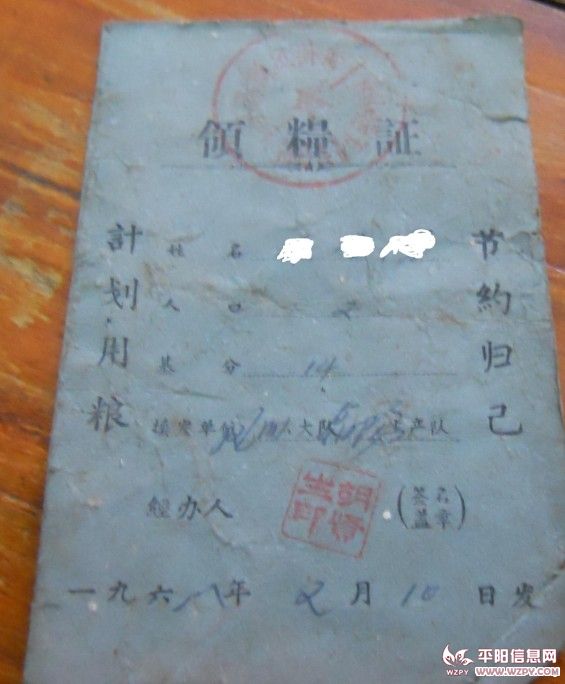 領糧証
計划用粮
节約归己
姓名
人口 2
基分 14
填发单位 大队 生产队
經办人 (签名盖章)
一九六八年 2月10日发
平阳信息网
WZPY WWW.WZPY.COM